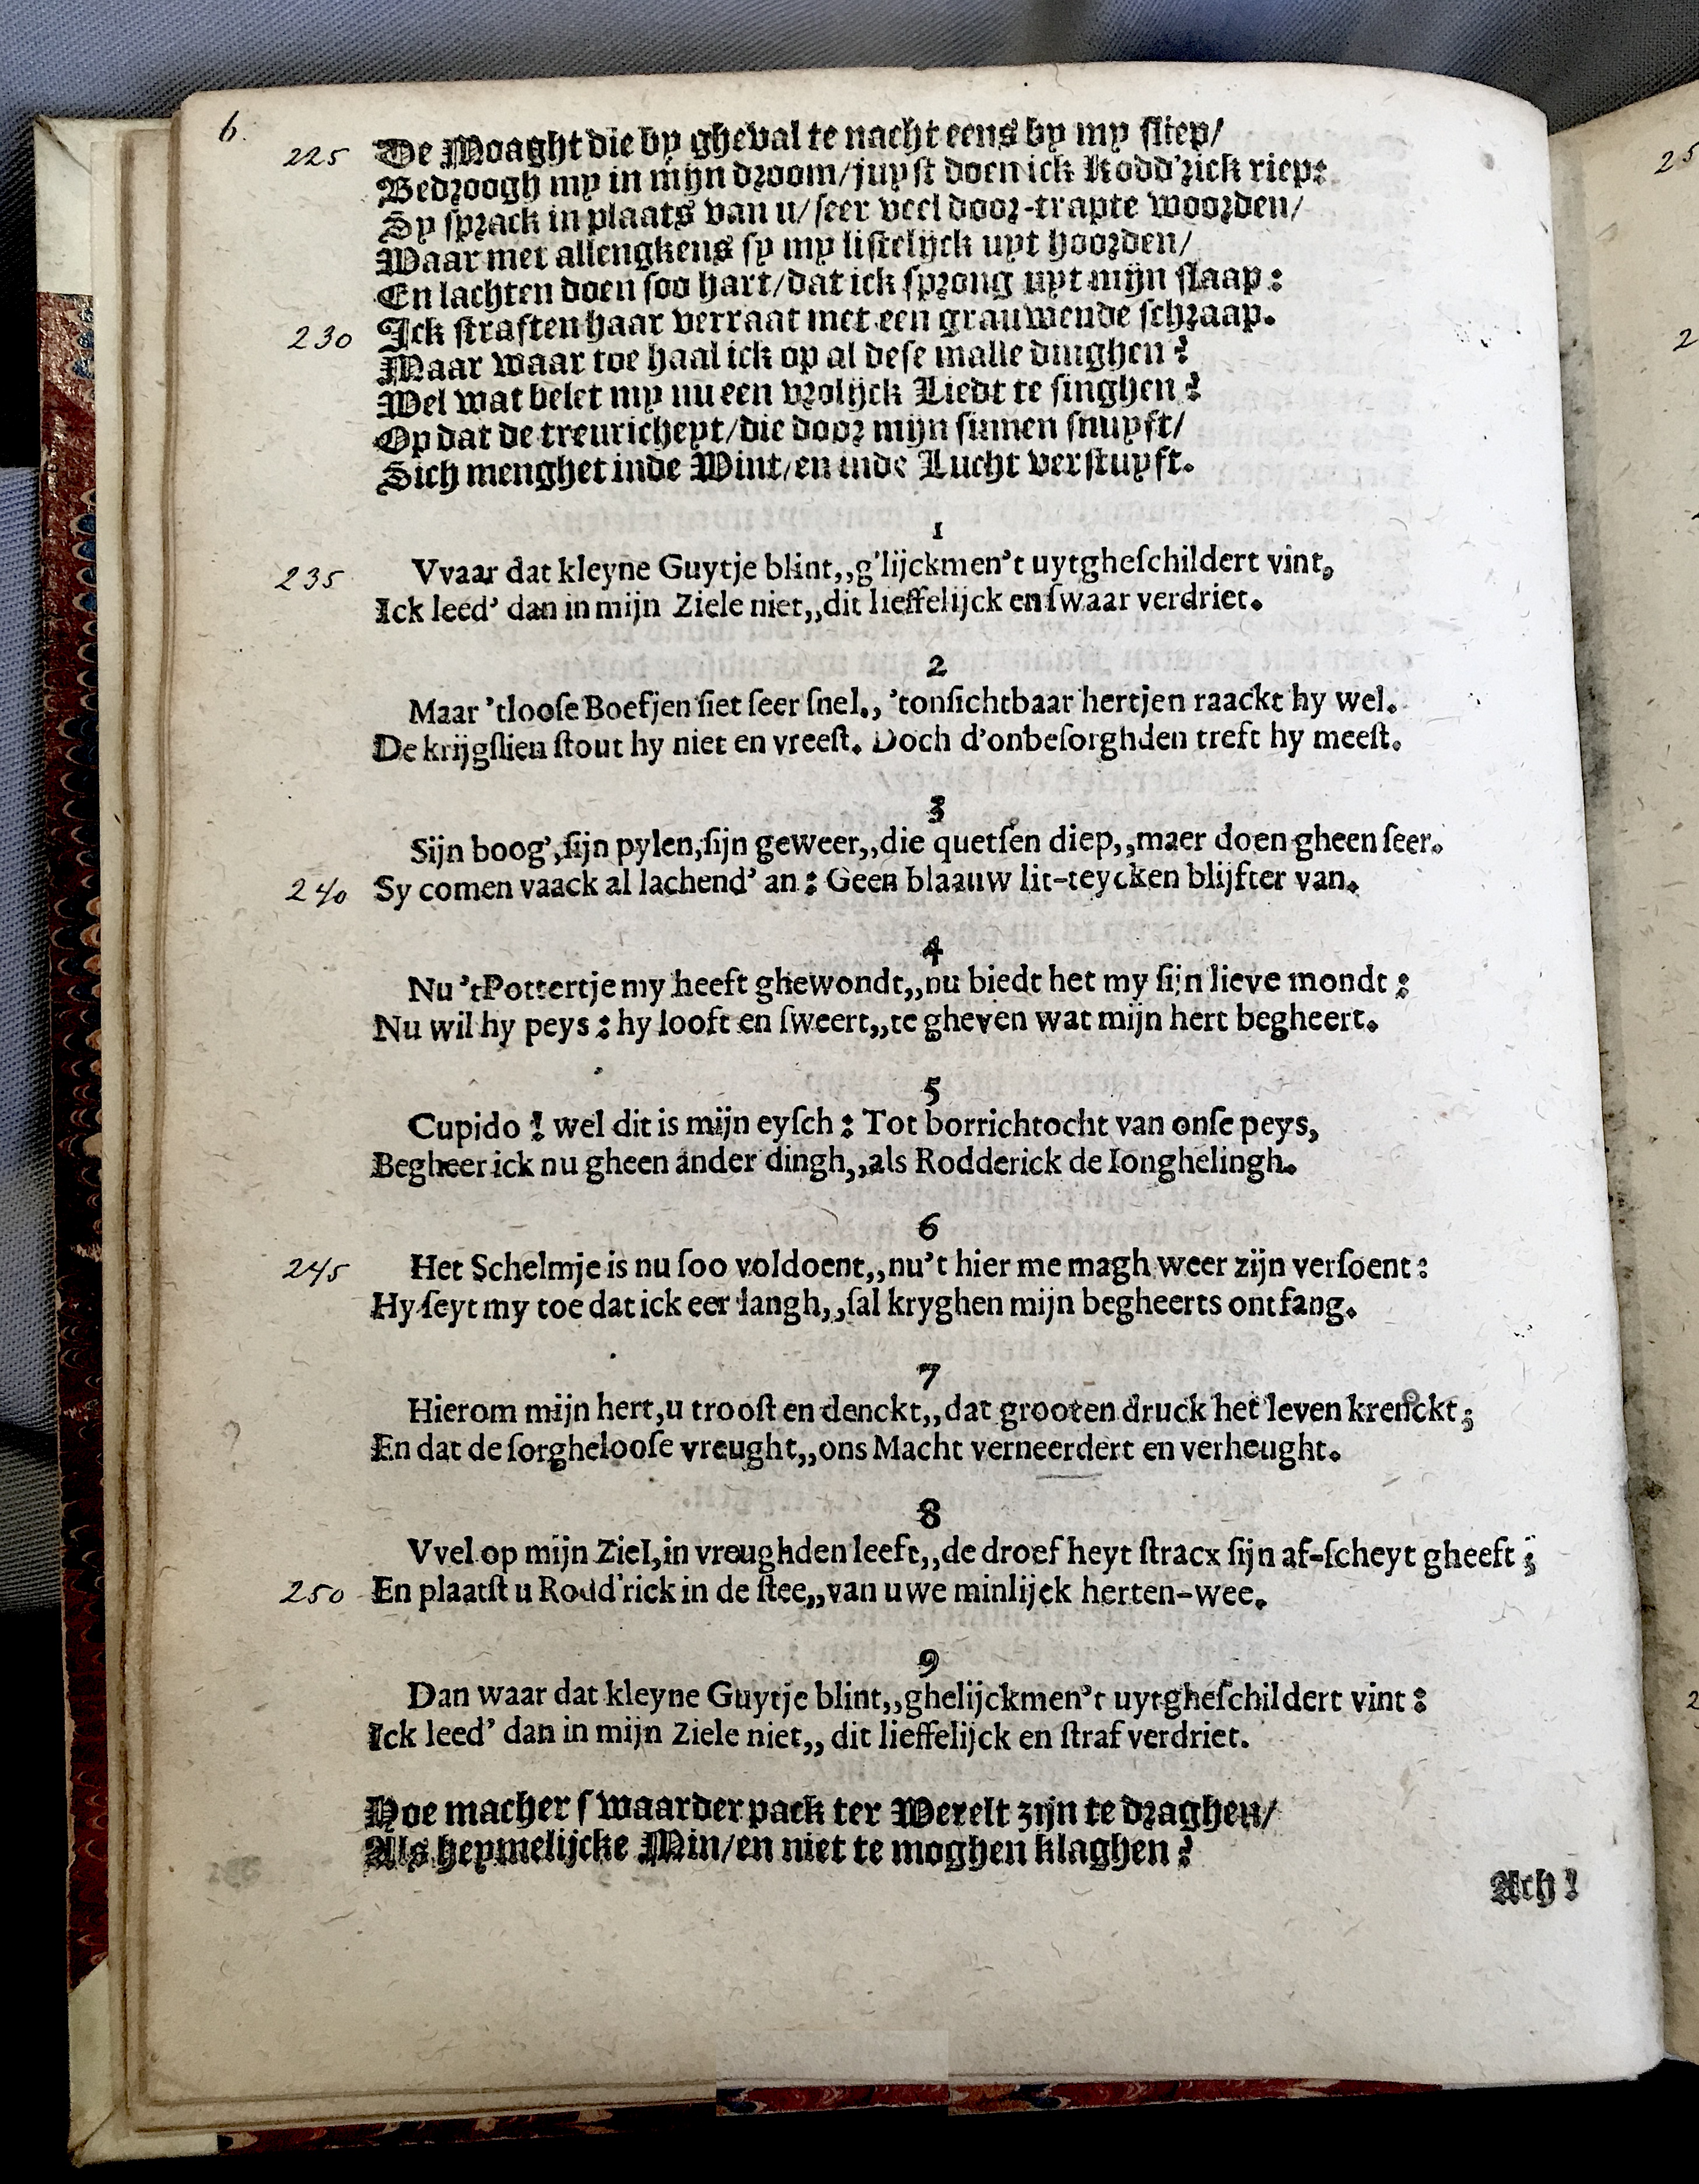 6.
225 De Moaght die by gheval te nacht eens by my sliep/
Bedroogh my in mijn droom/juyst doen ick Rodd'rick riep:
Sy sprack in plaats van u/seer veel door-trapte woorden/
Waar met allengkens sy my listelijck uyt hoorden/
En lachten doen soo hart/dat ick sprong uyt mijn slaap:
230 Ick straften haar verraat met een grauwende schraap.
Maar waar toe haal ick op al dese malle dinghen?
Wel wat belet my nu een vrolijck Liedt te singhen?
Op dat de treuricheyt/die door mijn sinnen snuyft/
Sich menghet inde Wint/en inde Lucht verstuyft.
1
235 Vvaar dat kleyne Guytje blint,,g'lijckmen't uytgheschildert vint,
Ick leed' dan in mijn Ziele niet,,dit lieffelijck en swaar verdriet.
2
Maar 'tloose Boefjen siet seer snel., 'tonsichtbaar hertjen raackt hy wel.
De krijgslien stout hy niet en vreest. Doch d'onbesorghden treft hy meest.
3
Sijn boog', sijn pylen, sijn geweer,,die quetsen diep,,maer doen gheen seer.
240 Sy comen vaack al lachend' an: Geen blaauw lit-teycken blijfter van.
4
Nu 'tPottertje my heeft ghewondt,,nu biedt het my sijn lieve mondt:
Nu wil hy peys: hy looft en sweert,,te gheven wat mijn hert begheert.
5
Cupido! wel dit is mijn eysch: Tot borrichtocht van onse peys,
Begheer ick nu gheen ander dingh,,als Rodderick de Ionghelingh.
6
245 Het Schelmje is nu soo voldoent,,nu't hier me magh weer zijn versoent:
Hy seyt my toe dat ick eer langh,,sal kryghen mijn begheerts ontfang.
7
Hierom mijn hert,u troost en denckt,,dat grooten druck het leven krenckt;
En dat de sorgheloose vreught,,ons Macht verneerdert en verheught.
8
Vvel op mijn Ziel,in vreughden leeft,,de droefheyt stracx sijn af-scheyt gheeft;
250 En plaatst u Rodd'rick in de stee,,van uwe minlijck herten-wee.
9
Dan waar dat kleyne Guytje blint,,ghelijckmen't uytgheschildert vint:
Ick leed' dan in mijn Ziele niet,, dit lieffelijck en straf verdriet.
Hoe macher swaarder pack ter Werelt zijn te draghen/
Als heymelijcke Min/en niet te moghen klaghen?
Ach!